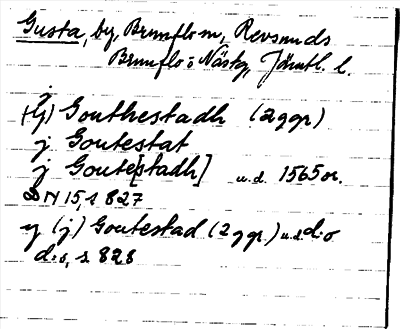 Gusta, by, Brunflo sn, Revsunds
Brunflo o Näskn, Jämtl. l.
(j) Gouthestadh (2 ggr)
j Goutestat
j Goute[stadh] u.d. 1565 or.
DN 15, s 827
y (j) Goutestad (2 ggr.) u.d. d:o
d:o, s. 828